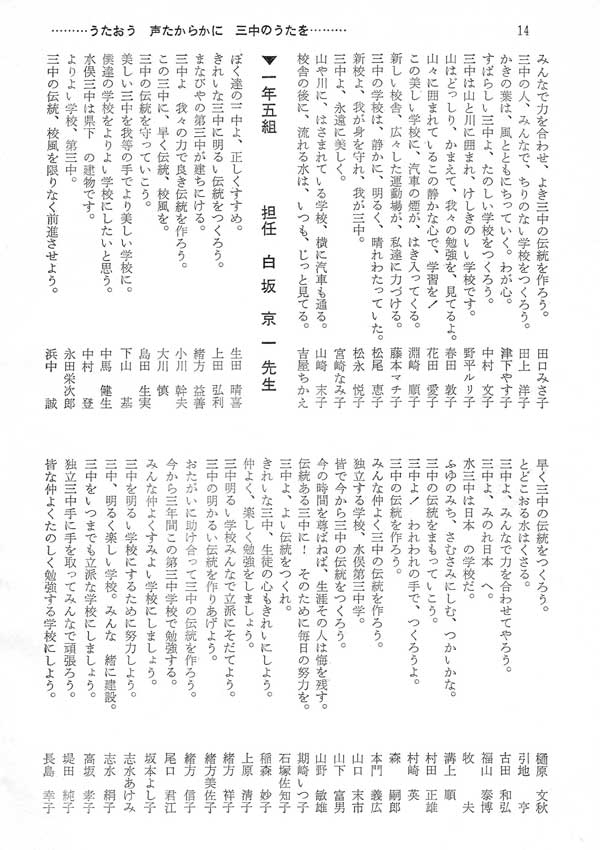 ………うたおう　声たからかに　三中のうたを………
14
みんなで力を合わせ、よき三中の伝統を作ろう。　田口みさ子
三中の人、みんなで、ちりのない学校をつくろう。　田上　洋子
かきの葉は、風とともにちっていく。わが心。　津下やす子
すばらしい三中よ、たのしい学校をつくろう。　中村　文子
三中は山と川に囲まれ、けしきのいい学校です。　野平ルリ子
山はどっしり、かまえて、我々の勉強を、見てるよ。　春田　敦子
山々に囲まれているこの静かな心で、学習を！　花田　愛子
この美しい学校に、汽車の煙が、はき入ってくる。　淵崎　順子
新しい校舎、広々した運動場が、私達に力づける。　藤本マチ子
三中の学校は、静かに、明るく、晴れわたっていた。　松尾　恵子
新校よ、我が身を守れ、我が三中。　松永　悦子
三中よ、永遠に美しく。　宮崎なみ子
山や川に、はさまれている学校、横に汽車も通る。　山崎　末子
校舎の後に、流れる水は、いつも、じっと見てる。　吉屋ちかえ
▼一年五組　　担任　白坂　京一先生
ぼく達の三中よ、正しくすすめ。　生田　晴喜
きれいな三中に明るい伝統をつくろう。　上田　弘利
まなびやの第三中が建ちにける。　緒方　益善
三中よ　我々の力で良き伝統を作ろう。　小川　幹夫
三中の三中に、早く伝統、校風を。　大川　慎
三中の伝統を守っていこう。　島田　生実
美しい三中を我等の手でより美しい学校に。　下山　基
僕達の学校をよりよい学校にしたいと思う。　中馬　健生
水俣三中は県下　の建物です。　中村　登
よりよい学校、第三中。　永田栄次郎
三中の伝統、校風を限りなく前進させよう。　浜中　誠
早く三中の伝統をつくろう。　樋原　文秋
とどこおる水はくさる。　引地　亨
三中よ、みんなで力を合わせてやろう。　古田　和弘
三中よ、みのれ日本　へ。　福山　泰博
水三中は日本　の学校だ。　牧　　夫
ふゆのみち、さむさみにしむ、つかいかな。　溝上　順
三中の伝統をまもっていこう。　村田　正雄
三中よ！　われわれの手で、つくろうよ。　村崎　英
三中の伝統を作ろう。　森　　嗣郎
みんな仲よく三中の伝統を作ろう。　本門　義広
独立する学校、水俣第三中学。　山口　末市
皆で今から三中の伝統をつくろう。　山下　富男
今の時間を尊ばねば、生涯その人は悔を残す。　山野　敏雄
伝統ある三中に！　そのために毎日の努力を。　期崎いつ子
三中よ、よい伝統をつくれ。　石塚佐知子
きれいな三中、生徒の心もきれいにしよう。　稲森　妙子
仲よく、楽しく勉強をしましょう。　上原　清子
三中明るい学校みんなで立派にそだてよう。　緒方　祥子
三中の明かるい伝統を作りあげよう。　緒方美佐子
おたがいに助け合って三中の伝統を作ろう。　緒方　信子
今から三年間この第三中学校で勉強する。　尾口　君江
みんな仲よくすみよい学校にしましょう。　坂本よし子
三中を明るい学校にするために努力しよう。　志水あけみ
三中、明るく楽しい学校。みんな　緒に建設。　志水　絹子
三中をいつまでも立派な学校にしましょう。　高坂　孝子
独立三中手に手を取ってみんなで頑張ろう。　堤田　純子
皆な仲よくたのしく勉強する学校にしよう。　長島　幸子